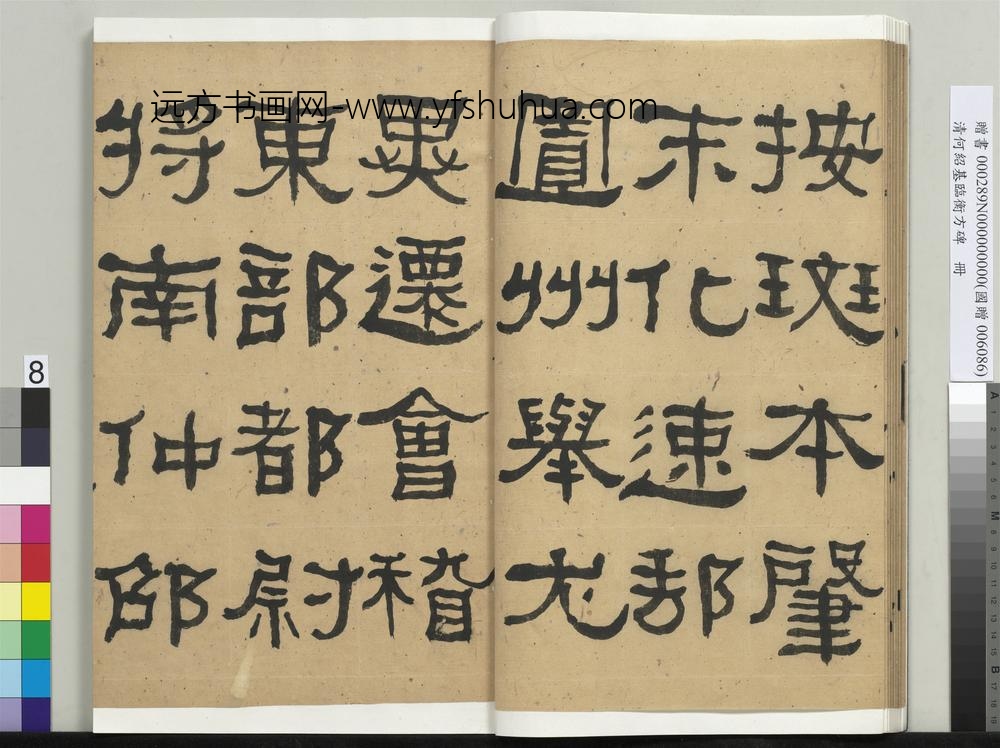 按班本肇
末化速郵
置州舉尤
異遷會稽
東部都尉
將南仲邵
远方书画网-www.yfshuhua.com
贈書 000289N000000000(國贈 006086)
清何紹基臨衡方碑 冊
8
A 1 2 3 4 5 6 M 8 9 10 11 12 13 14 15 B 17 18 19